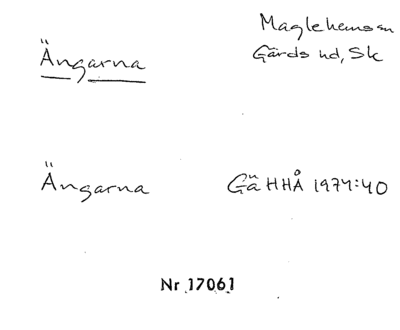 Ängarna
Maglehems sn
Gärds hd, Sk
Ängarna
Gä HHÅ 1974:40
Nr 17061